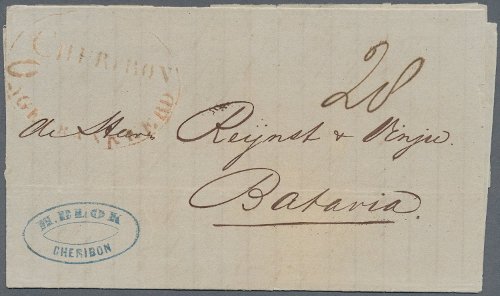 CHERIBON
ONGEFRANKEERD
20
de Heeren Reijnst & Vinju
Batavia.
H. BLOK
CHERIBON